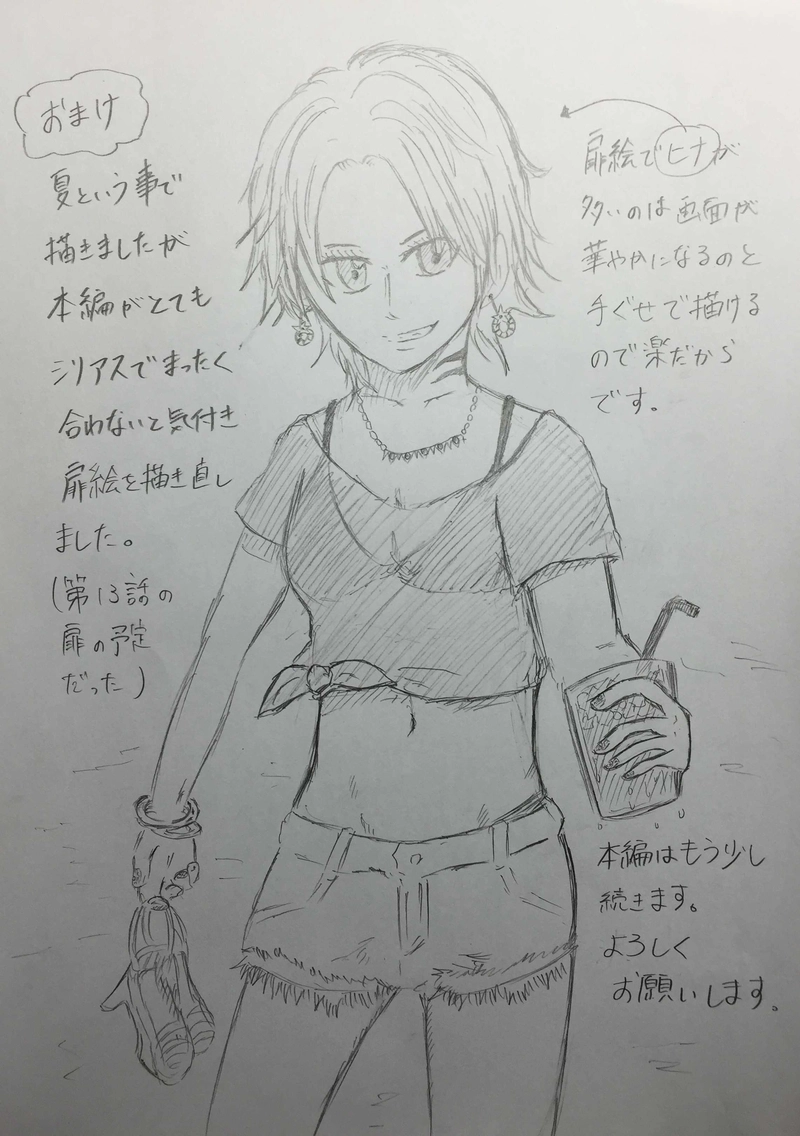 おまけ
夏という事で
描きましたが
本編がとても
シリアスでまったく
合わないと気付き
扉絵を描き直し
ました。
(第13話の
扉の予定
だった)
扉絵でヒナが
多いのは画面が
華やかになるのと
手ぐせで描ける
ので楽だから
です。
本編はもう少し
続きます。
よろしく
お願いします。